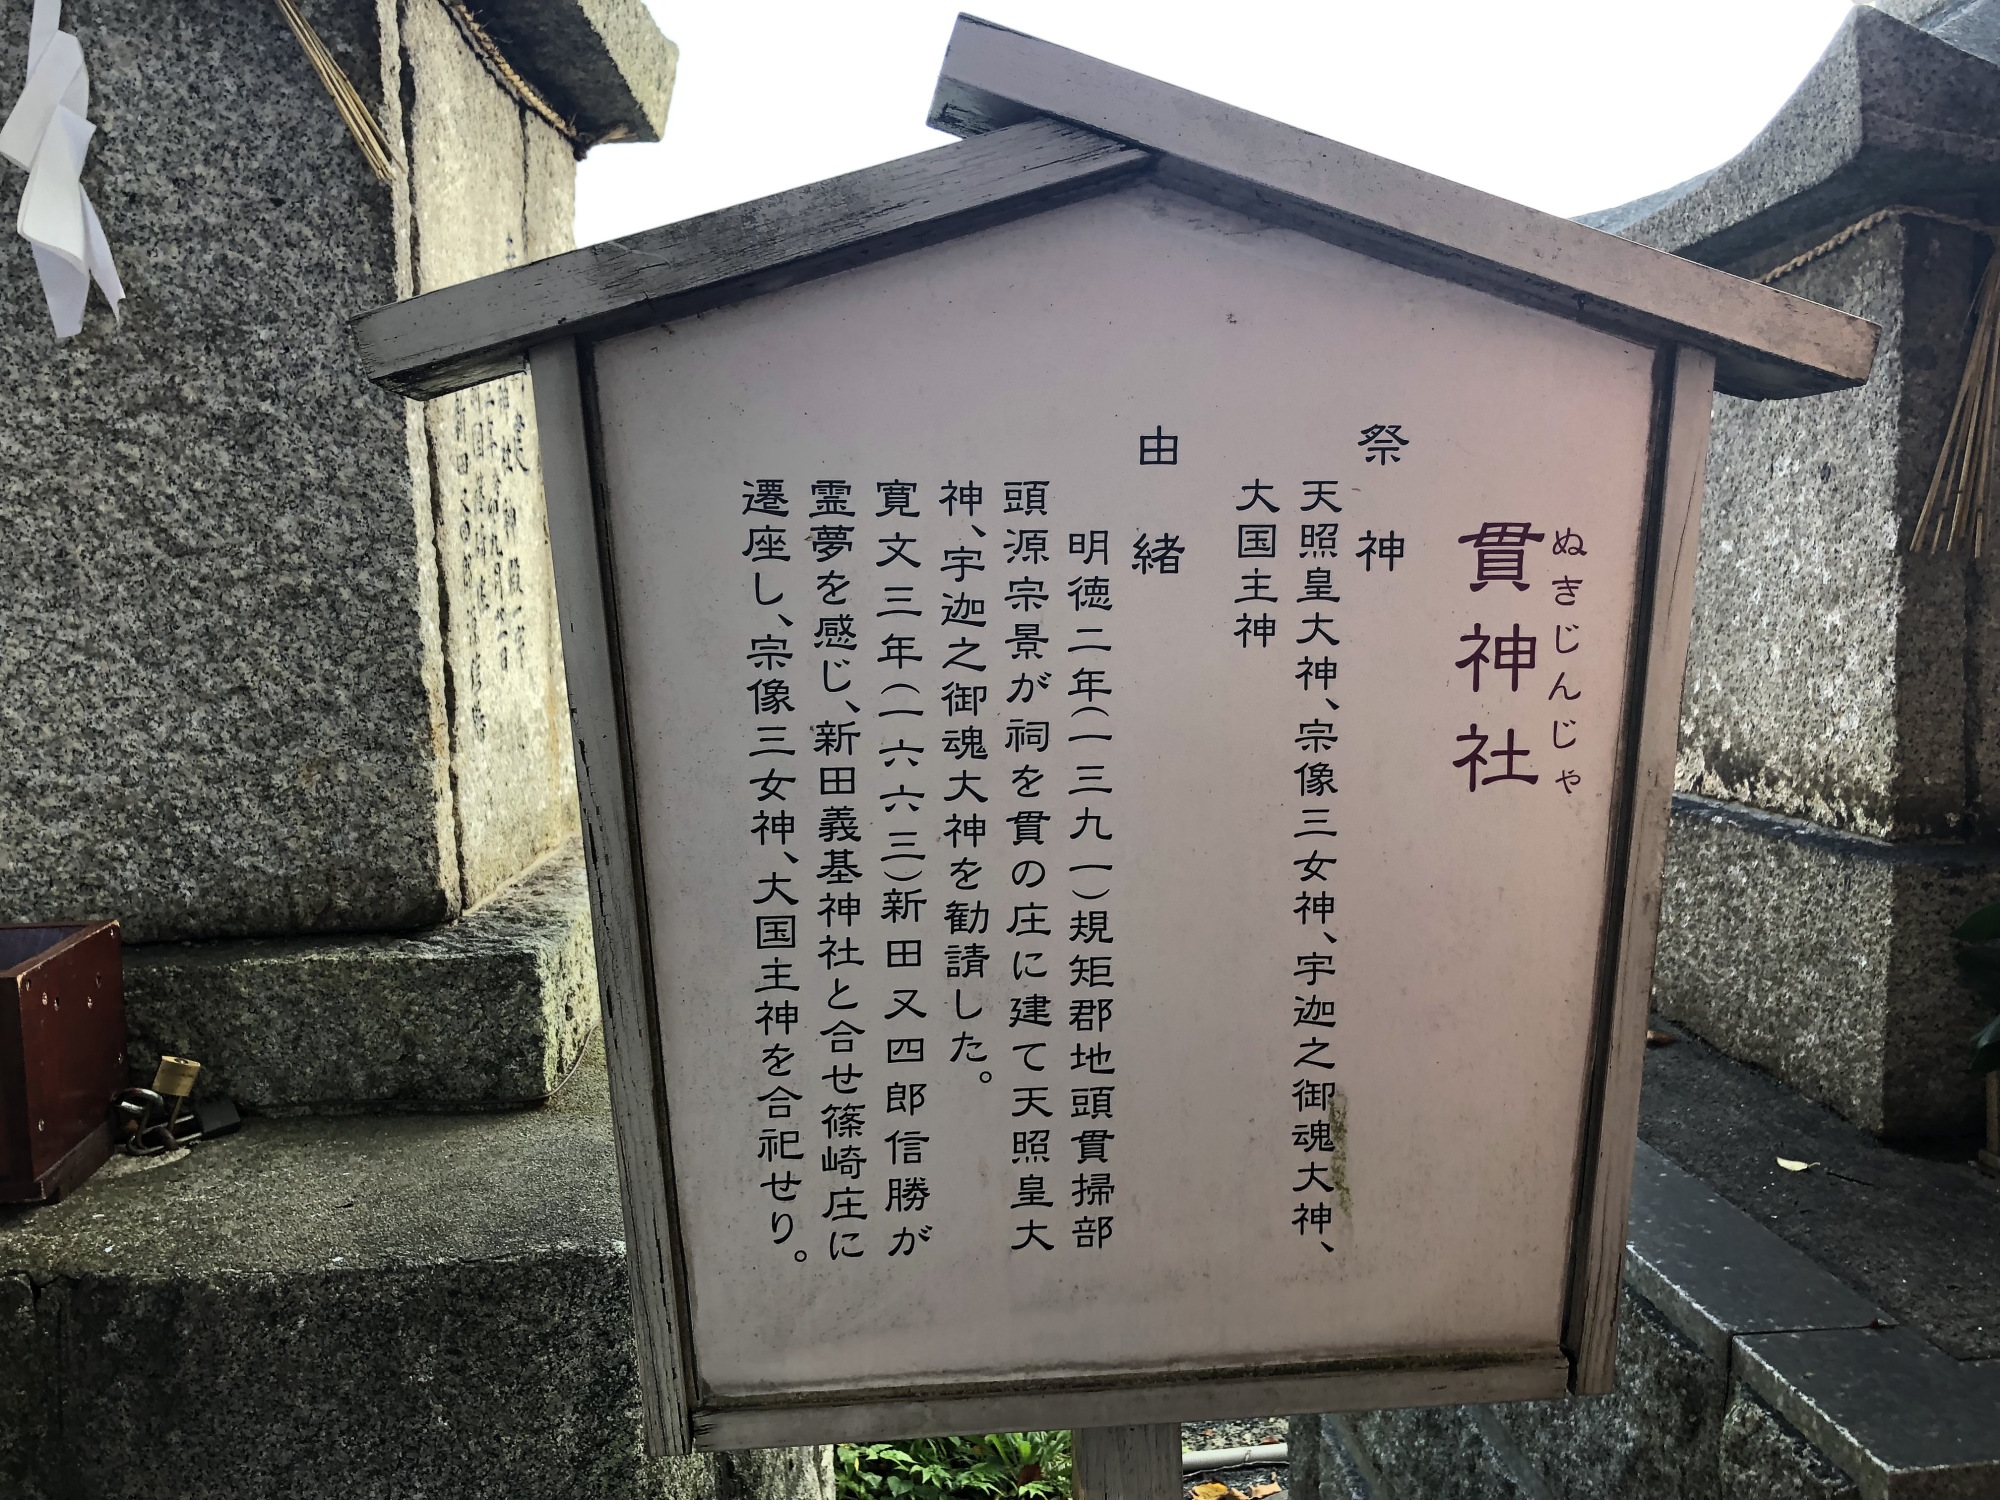 ぬきじんじゃ
貫神社
祭神
天照皇大神、宗像三女神、宇迦之御魂大神、
大国主神
由緒
明徳二年(一三九一)規矩郡地頭貫掃部
頭源宗景が祠を貫の庄に建て天照皇大
神、宇迦之御魂大神を勧請した。
寛文三年(一六六三)新田又四郎信勝が
霊夢を感じ、新田義基神社と合せ篠崎庄に
遷座し、宗像三女神、大国主神を合祀せり。